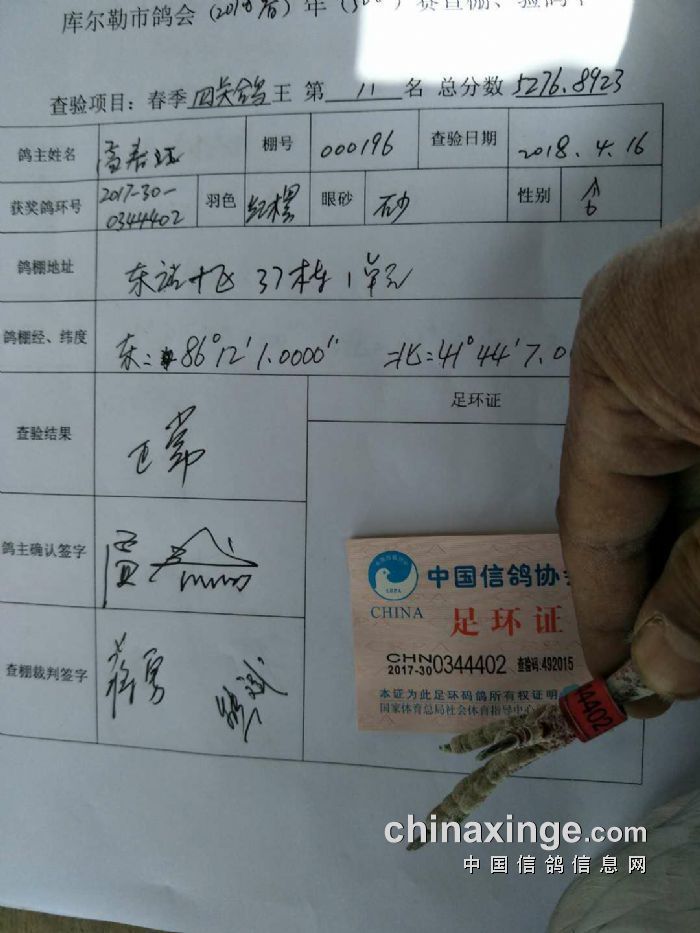 库尔勒市鸽会（2018春）年（500）赛查棚、验鸽单
查验项目：春季四关鸽王 第 11 名 总分数 5276.8923
鸽主姓名 棚号 000196 查验日期 2018.4.16
获奖鸽环号 2017-30-0344402 羽色 红楞 眼砂 砂 性别 ♂
鸽棚地址 37栋1单元
鸽棚经、纬度 东：86°12′1.0000″ 北：41°44′7.0
查验结果 正常 足环证
鸽主确认签字
查棚裁判签字 蒋勇
中国信鸽协会
CHINA
足环证
CHN 2017-30 0344402 查验码:492015
本证为此足环码鸽所有权证明
国家体育总局社会体育指导中心
4402
chinaxinge.com
中国信鸽信息网